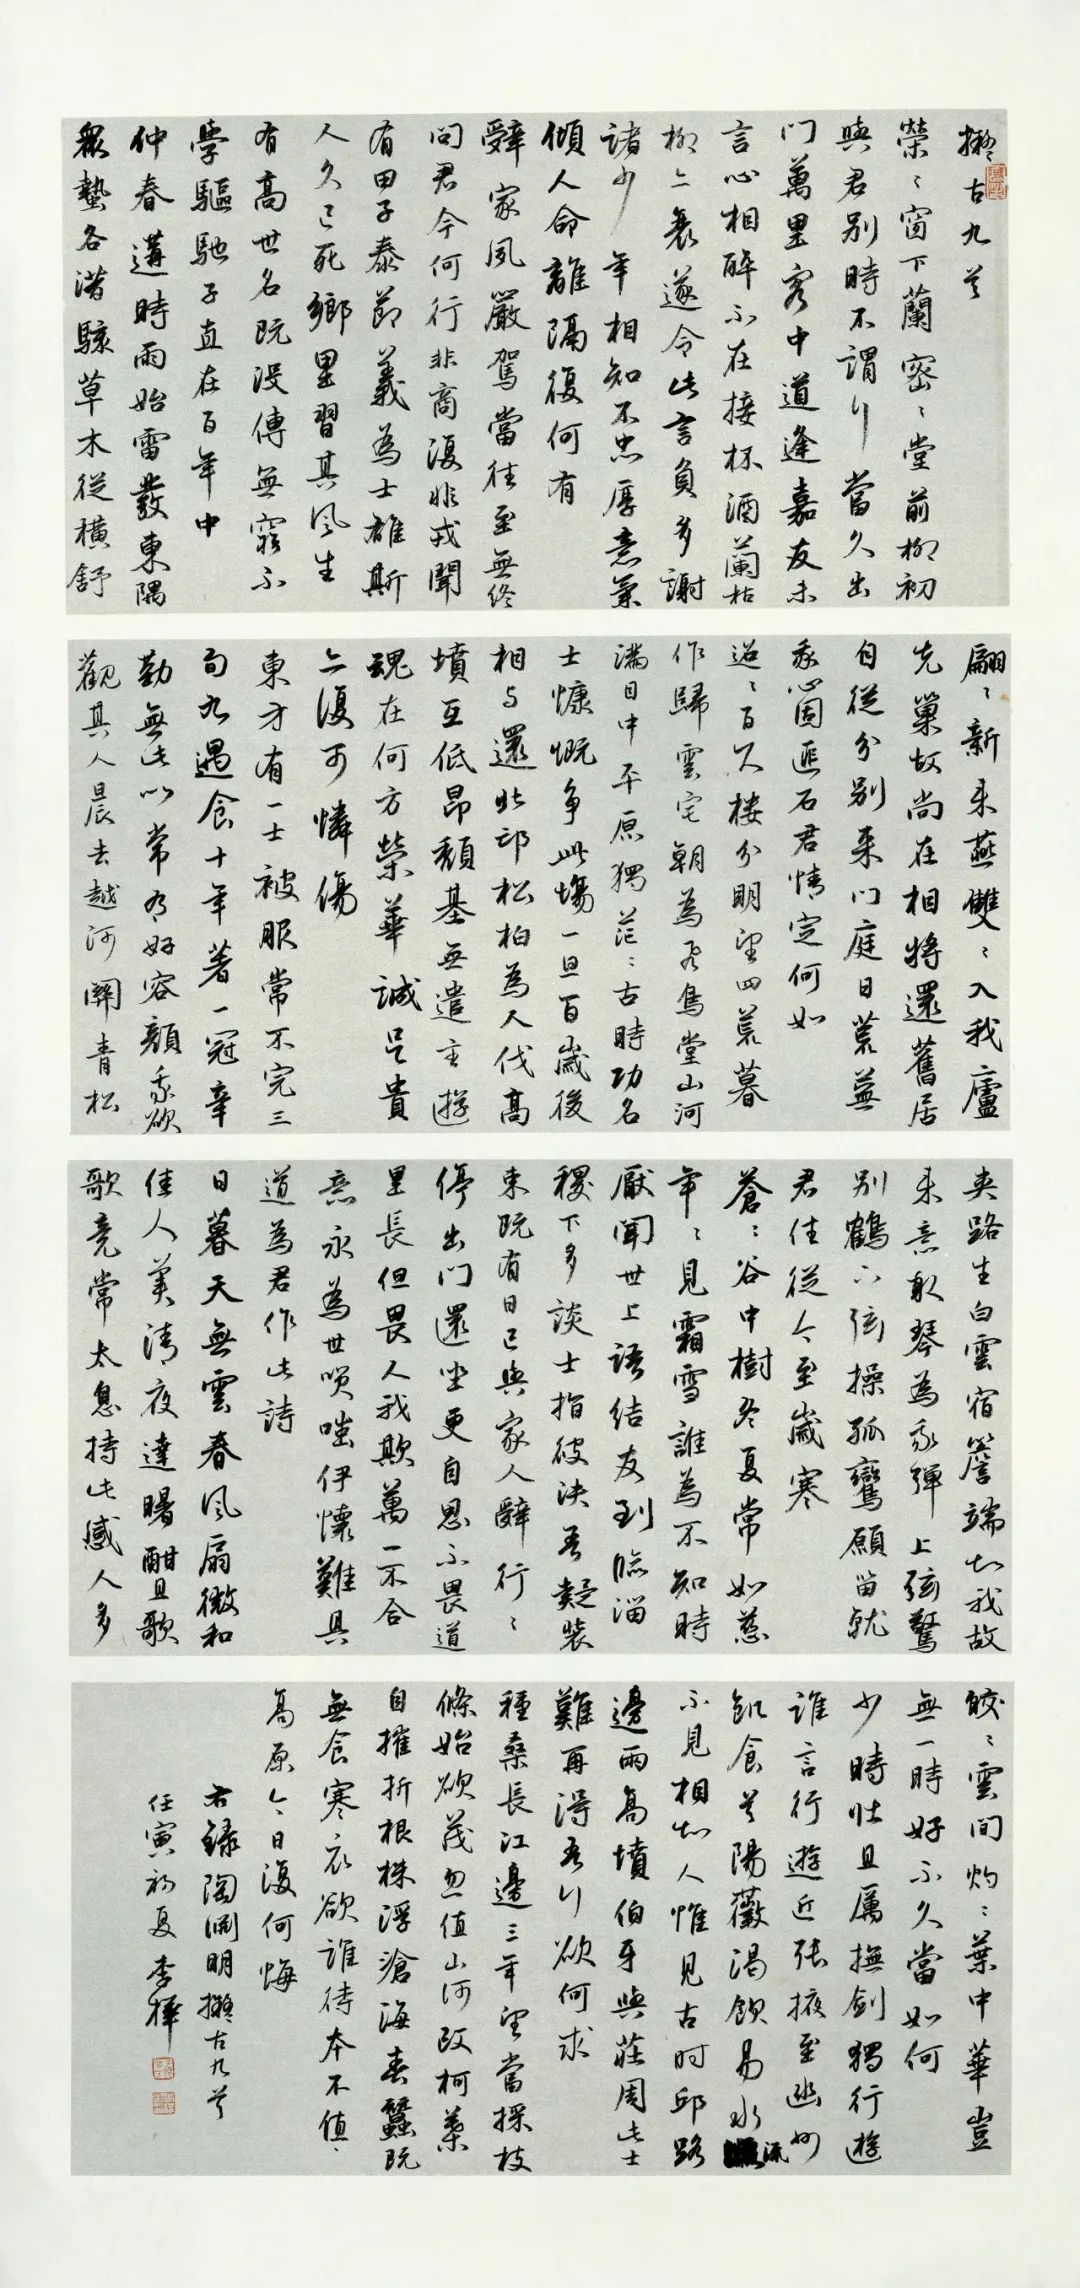 擬古九首
榮〻窗下蘭密〻堂前柳初
與君別時不謂行當久出
門萬里客中道逢嘉友未
言心相醉不在接杯酒蘭枯
柳亦衰遂令此言負多謝
諸少年相知不忠厚意氣
傾人命離隔復何有
辭家夙嚴駕當往至無終
問君今何行非商復非戎聞
有田子泰節義為士雄斯
人久已死鄉里習其風生
有高世名既沒傳無窮不
學驅馳子直在百年中
仲春遘時雨始雷發東隅
眾蟄各潛駭草木從橫舒
翩〻新來燕雙〻入我廬
先巢故尚在相將還舊居
自從分別來門庭日荒蕪
我心固匪石君情定何如
迢〻百尺樓分明望四荒暮
作歸雲宅朝為飛鳥堂山河
滿目中平原獨茫〻古時功名
士慷慨爭此場一旦百歲後
相與還北邙松柏為人伐高
墳互低昂頹基無遺主遊
魂在何方榮華誠足貴
亦復可憐傷
東方有一士被服常不完三
旬九遇食十年著一冠辛
勤無此比常有好容顏我欲
觀其人晨去越河關青松
夾路生白雲宿簷端知我故
來意取琴為我彈上弦驚
別鶴下弦操孤鸞願留就
君住從今至歲寒
蒼〻谷中樹冬夏常如茲
年〻見霜雪誰為不知時
厭聞世上語結友到臨淄
稷下多談士指彼決吾疑裝
束既有日已與家人辭行〻
停出門還坐更自思不畏道
里長但畏人我欺萬一不合
意永為世笑嗤伊懷難具
道為君作此詩
日暮天無雲春風扇微和
佳人美清夜達曙酣且歌
歌竟常太息持此感人多
皎〻雲間灼〻葉中華豈
無一時好不久當如何
少時壯且厲撫劍獨行遊
誰言行遊近張掖至幽州
飢食首陽薇渴飲易水流
不見相知人惟見古時邱路
邊兩高墳伯牙與莊周此士
難再得吾行欲何求
種桑長江邊三年望當採枝
條始欲茂忽值山河改柯葉
自摧折根株浮滄海春蠶既
無食寒衣欲誰待本不值
高原今日復何悔
右錄陶淵明擬古九首
任寅初夏李樺